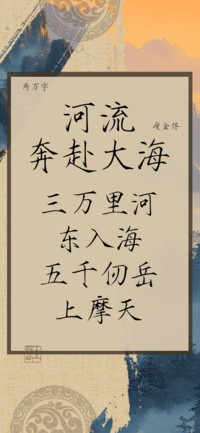 两万字
瘦金体
河流
奔赴大海
三万里河
东入海
五千仞岳
上摩天